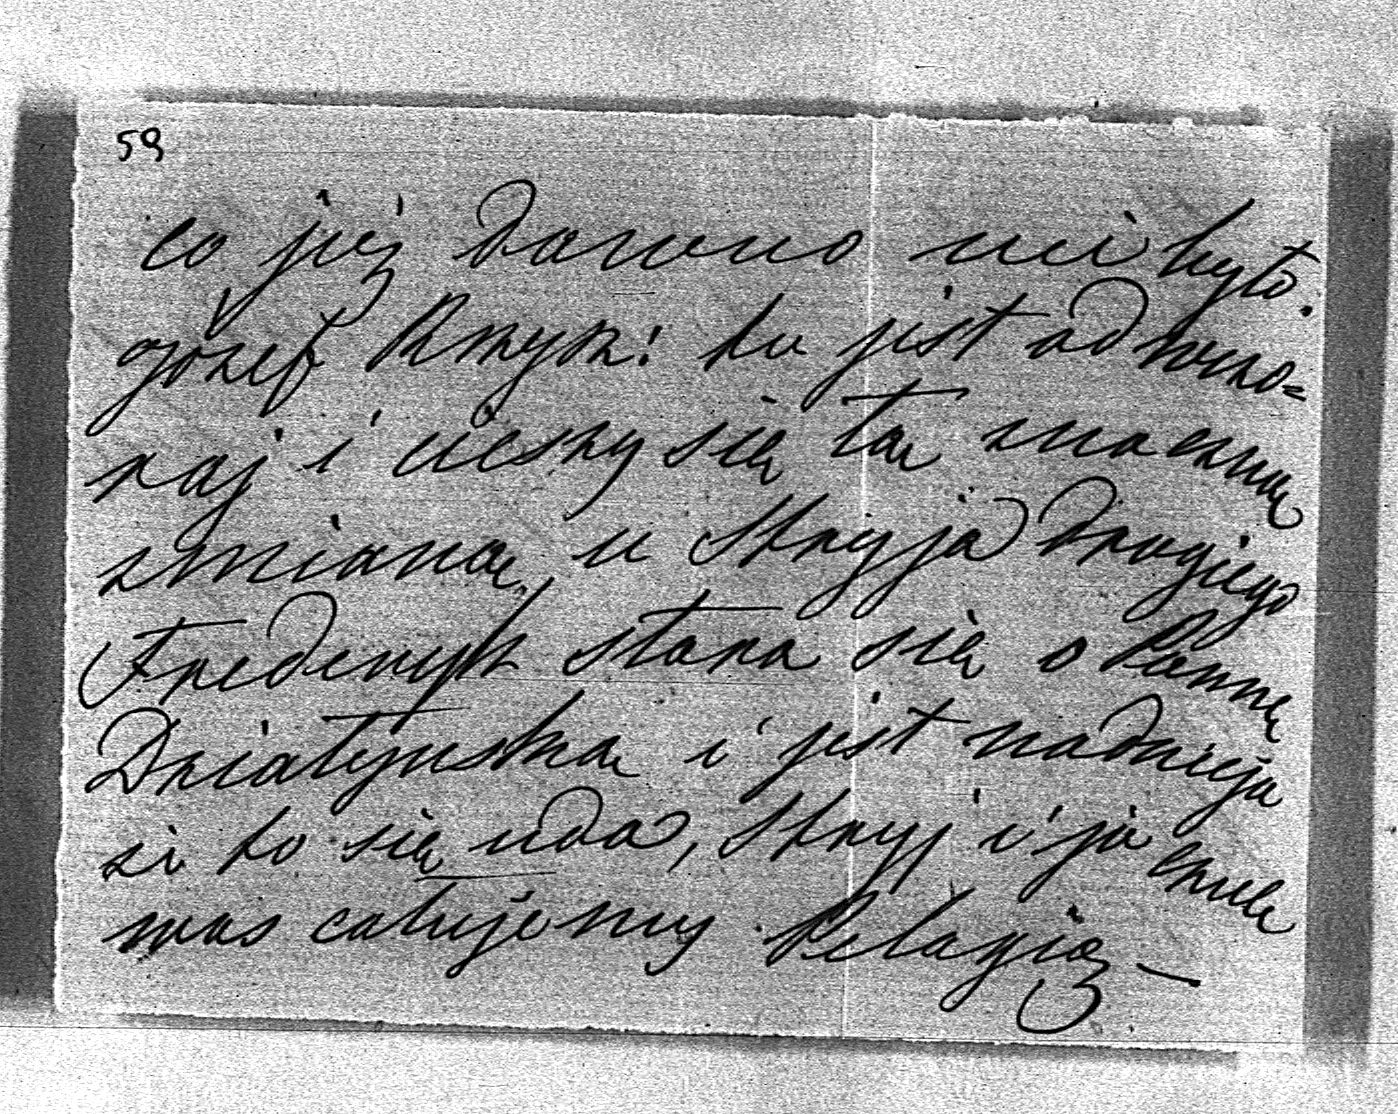 59
co już dawno nie było.
Józef Krzyk: tu jest od wczo=
raj i cieszy się tą znaczną
zmianą, u Stryja drugiego
Fryderyk stara się o Pannę
Działyńską i jest nadzieja
że to się uda, Stryj i ja czule
was całujemy Pelagia